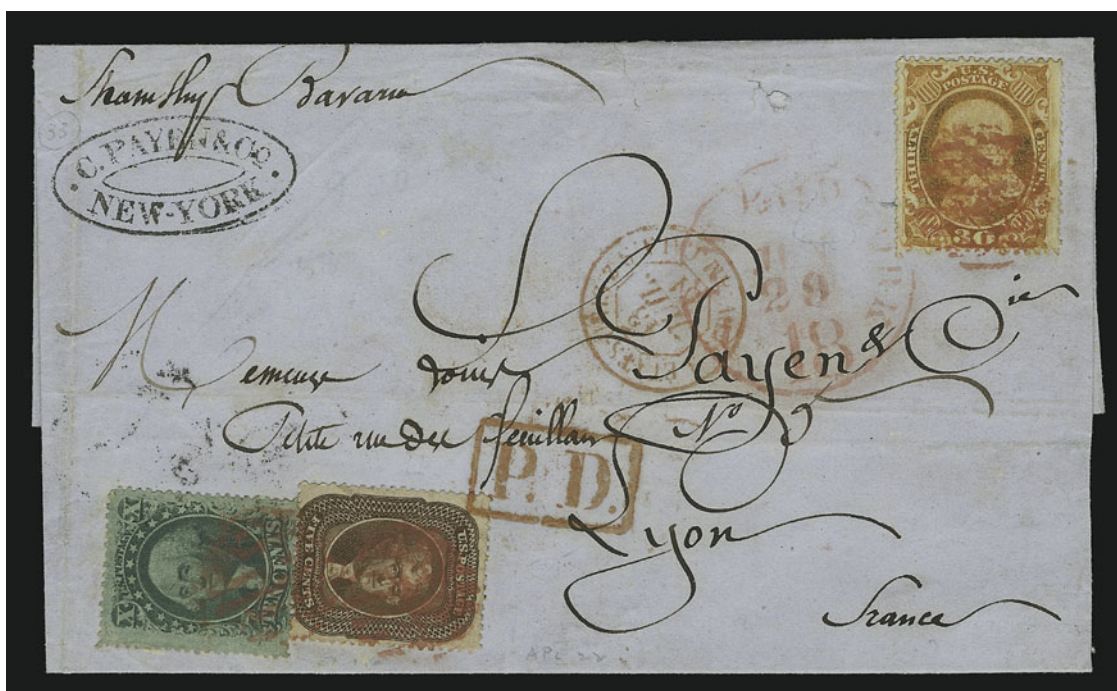 Steamship Bavaria
33
C. PAYEN & CO.
NEW-YORK
U.S. POSTAGE
THIRTY CENTS
30
PAID
29
18
Messieurs Louis Payen & Cie
Petite rue des feuillans No
P.D.
Lyon
France
X
U.S. POSTAGE
X
TEN CENTS
U.S. POSTAGE
FIVE CENTS